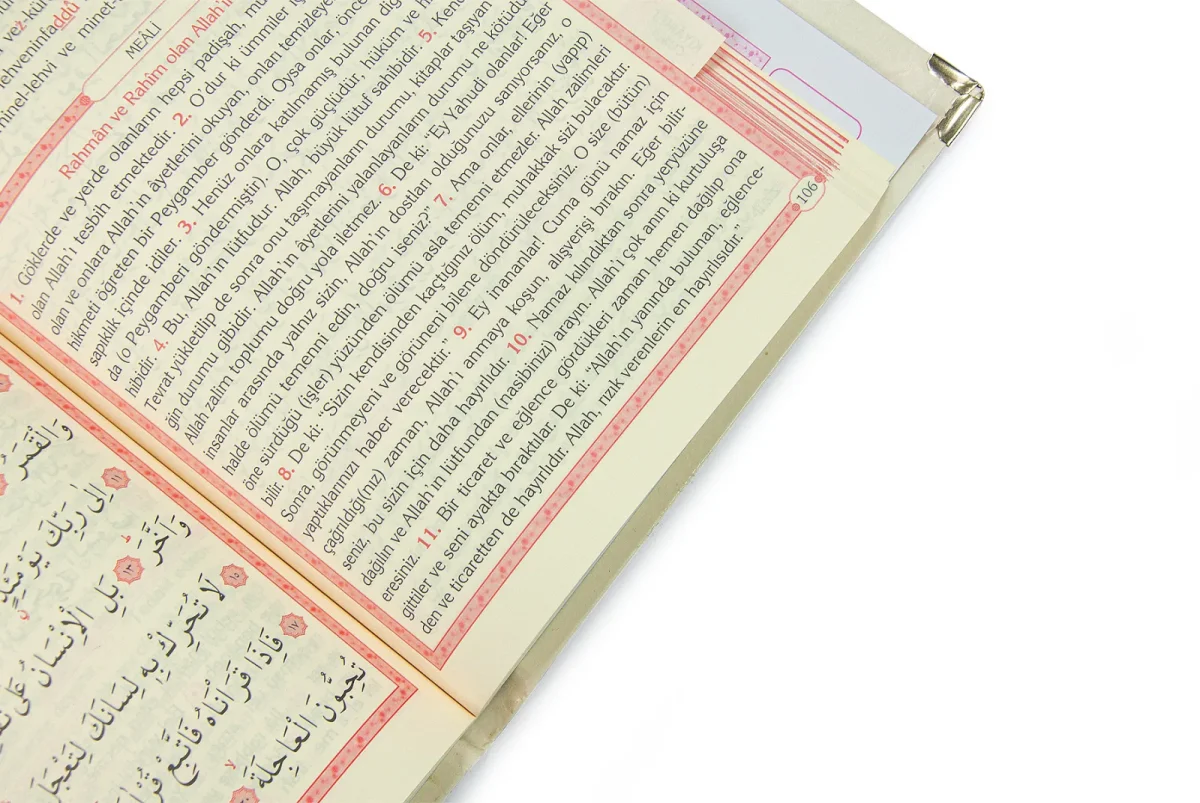 vez kür
ehveninfaddû
minel-lehvi ve minet-
MEÂLİ
Rahmân ve Rahîm olan Allah'ın
1. Göklerde ve yerde olanların hepsi padişah, mu
olan Allah'ı tesbih etmektedir. 2. O'dur ki ümmiler iç
olan ve onlara Allah'ın âyetlerini okuyan, onları temizleye
hikmeti öğreten bir Peygamber gönderdi. Oysa onlar, önce
sapıklık içinde idiler. 3. Henüz onlara katılmamış bulunan diğ
da (o Peygamberi göndermiştir). O, çok güçlüdür, hüküm ve h
hibidir. 4. Bu, Allah'ın lütfudur. Allah, büyük lütuf sahibidir. 5. Kend
Tevrat yükletilip de sonra onu taşımayanların durumu, kitaplar taşıyan
ğin durumu gibidir. Allah'ın âyetlerini yalanlayanların durumu ne kötüdü
Allah zalim toplumu doğru yola iletmez. 6. De ki: "Ey Yahudi olanlar! Eğer
insanlar arasında yalnız sizin, Allah'ın dostları olduğunuzu sanıyorsanız, o
halde ölümü temenni edin, doğru iseniz?" 7. Ama onlar, ellerinin (yapıp)
öne sürdüğü (işler) yüzünden ölümü asla temenni etmezler. Allah zalimleri
bilir. 8. De ki: "Sizin kendisinden kaçtığınız ölüm, muhakkak sizi bulacaktır.
Sonra, görünmeyeni ve görüneni bilene döndürüleceksiniz. O size (bütün)
yaptıklarınızı haber verecektir." 9. Ey inananlar! Cuma günü namaz için
çağrıldığı(nız) zaman, Allah'ı anmaya koşun, alışverişi bırakın. Eğer bilir-
seniz, bu sizin için daha hayırlıdır. 10. Namaz kılındıktan sonra yeryüzüne
dağılın ve Allah'ın lütfundan (nasibinizi) arayın. Allah'ı çok anın ki kurtuluşa
eresiniz. 11. Bir ticaret ve eğlence gördükleri zaman hemen dağılıp ona
gittiler ve seni ayakta bıraktılar. De ki: "Allah'ın yanında bulunan, eğlence-
den ve ticaretten de hayırlıdır. Allah, rızık verenlerin en hayırlısıdır."
106
وَالْقَمَرُ
١١ إِلَى رَبِّكَ يَوْمَئِذٍ
وَأَخَّرَ ١٣ بَلِ الْإِنْسَانُ عَلَى
١٥ لَا تُحَرِّكْ بِهِ لِسَانَكَ لِتَعْجَلَ
١٧ فَإِذَا قَرَأْنَاهُ فَاتَّبِعْ
تُحِبُّونَ الْعَاجِلَةَ